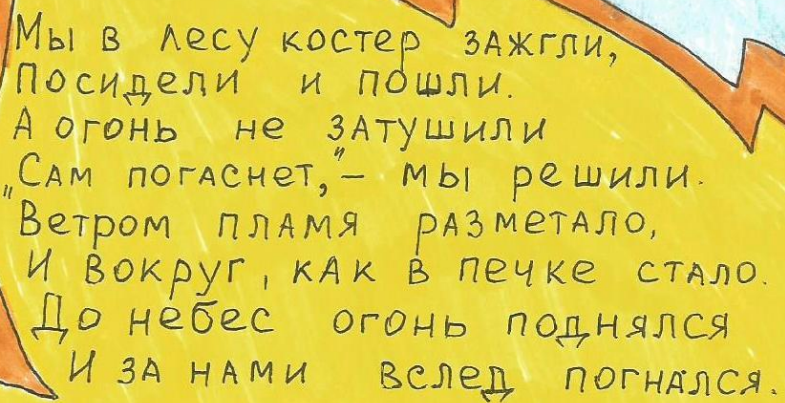 Мы в лесу костер зажгли,
Посидели и пошли.
А огонь не затушили
„Сам погаснет,"– мы решили.
Ветром пламя разметало,
И вокруг, как в печке стало.
До небес огонь поднялся
И за нами вслед погнался.